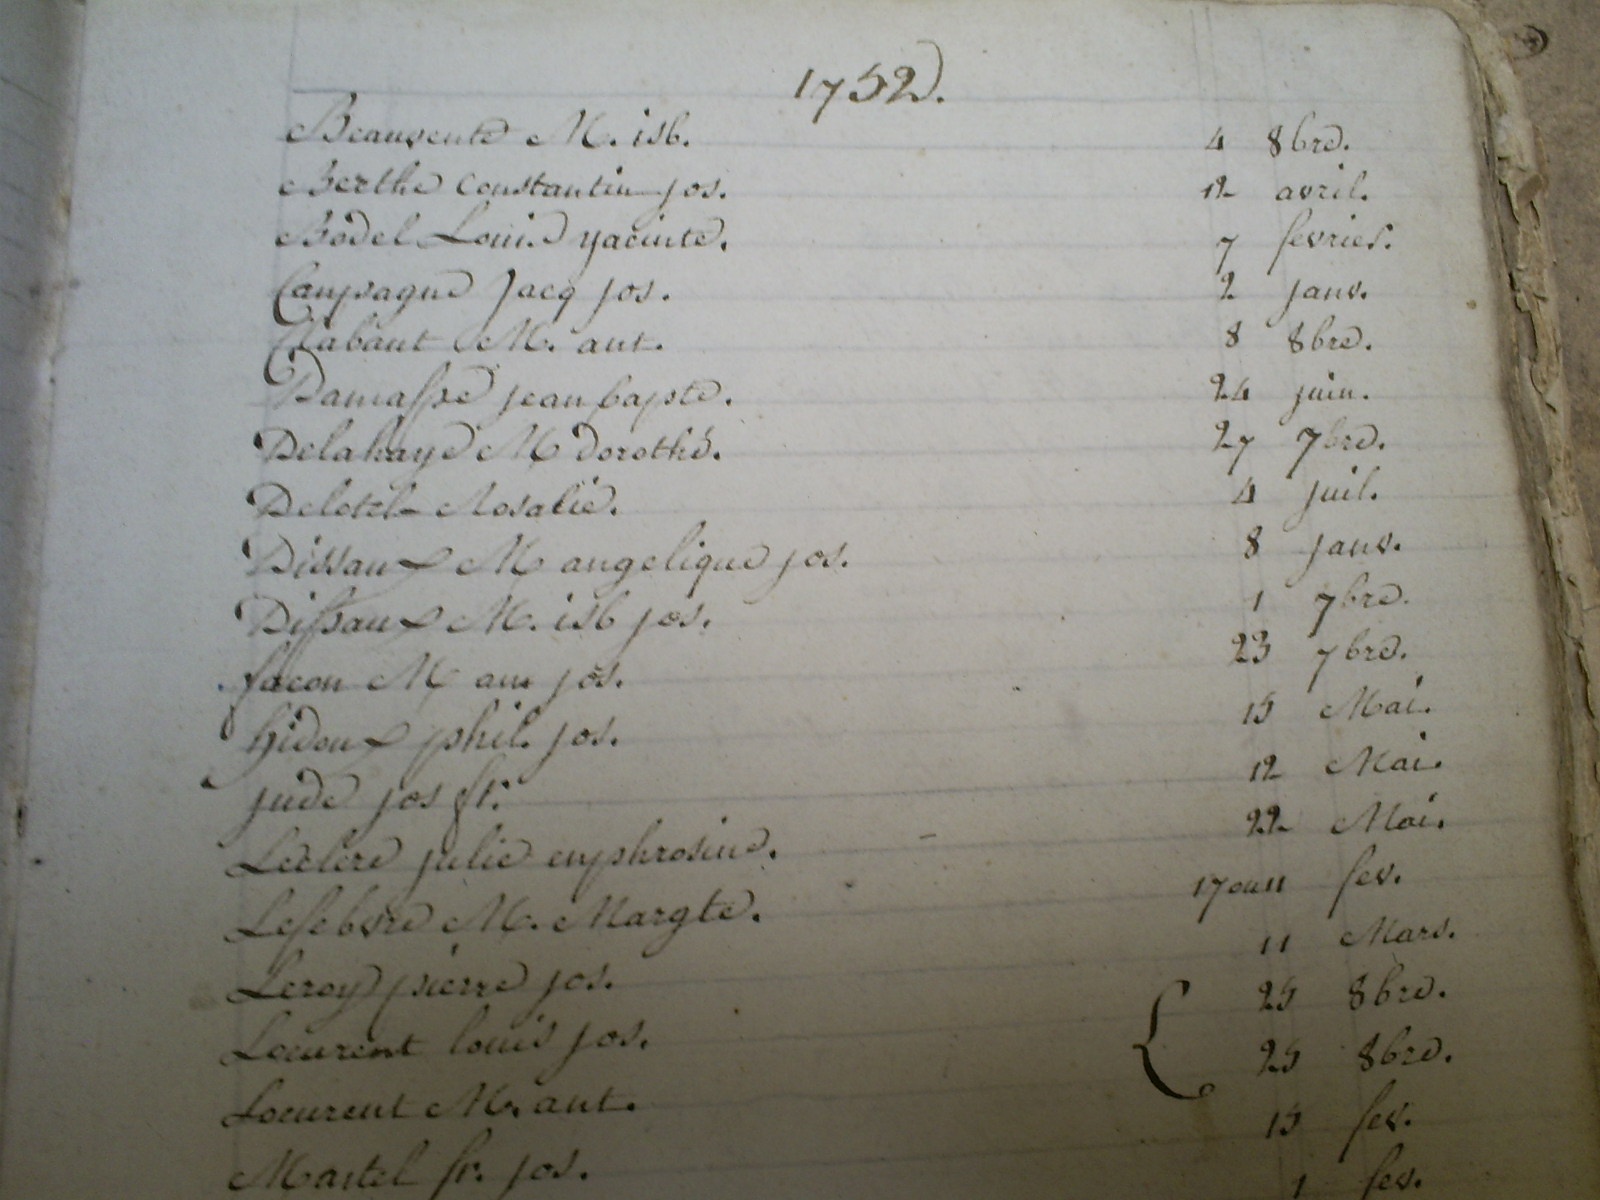 1752.
Beauvente M. isb. 4 8bre.
Berthe Constantin jos. 12 avril.
Bodel Louis yacinte. 7 fevrier.
Campagne Jacq jos. 2 janv.
Clabaut M. ant. 8 8bre.
Damasse jean bapte. 24 juin.
Delahaye M dorothé. 27 7bre.
Rosalie. 4 juil.
Dissaux M angelique jos. 8 janv.
Dissaux M. isb jos. 1 7bre.
facon M ann jos. 23 7bre.
hidoux phil. jos. 15 Mai.
jude jos fr. 12 Mai.
Leclerc julie euphrosine. 22 Mai.
Lefebvre M. Margte. 17 ou 11 fev.
Leroy pierre jos. 11 Mars.
Loeurent louis jos. 25 8bre.
Loeurent M. ant. 25 8bre.
Martel fr. jos. 15 fev.
1 fev.